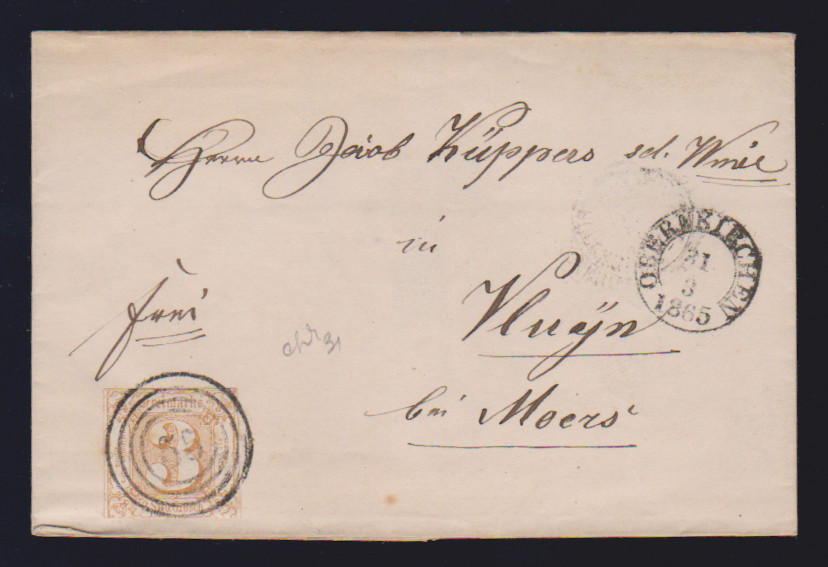 Herrn Jacob Küppers sel. Wwe
in
OBERNKIRCHEN
21
3
1865
frei
Vluÿn
bei Moers
3